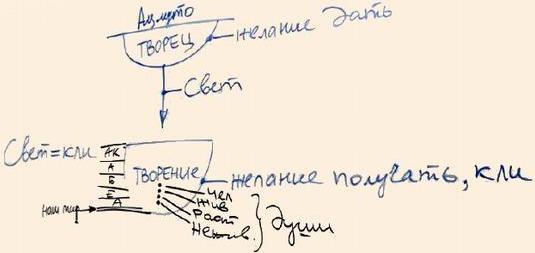 Ацмуто
ТВОРЕЦ
желание дать
Свет
Свет=кли
АК
А
Б
Е
А
наш мир
ТВОРЕНИЕ
желание получать, кли
чел
жив
Раст
Нежив.
Души